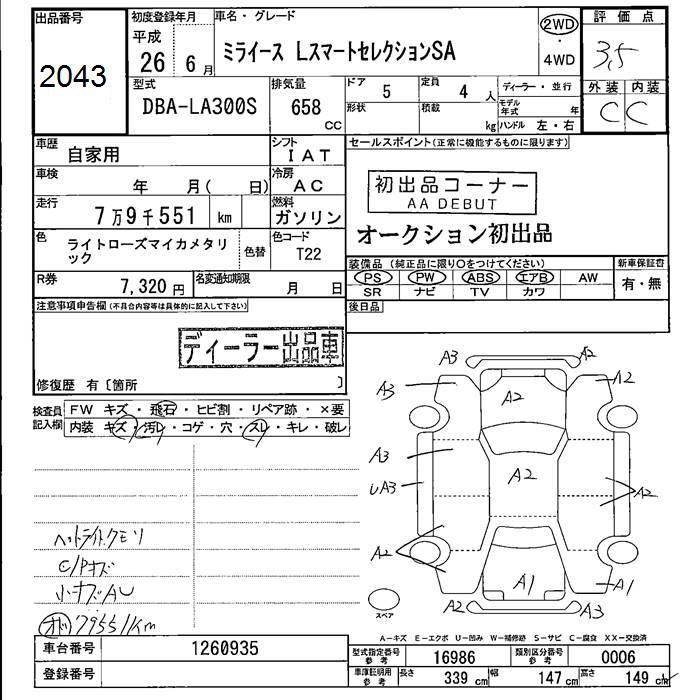 出品番号
2043
初度登録年月
平成
26 6月
車名・グレード
ミライース LスマートセレクションSA
2WD
・
4WD
評価点
3,5
外装 内装
C C
型式
DBA-LA300S
排気量
658
CC
ドア 5
定員 4 人
形状
積載 kg
ディーラー・並行
モデル年式 年
ハンドル 左・右
車歴 自家用
シフト IAT
車検 年 月( 日)
冷房 AC
走行 7万9千551 km
燃料 ガソリン
色 ライトローズマイカメタリック
色替
色コード T22
R券 7,320 円
名変通知期限 月 日
セールスポイント(正常に機能するものに限ります)
初出品コーナー
AA DEBUT
オークション初出品
装備品(純正品に限り○をつけてください)
PS PW ABS エアB AW
SR ナビ TV カワ
新車保証書
有・無
後日品
注意事項申告欄(不具合内容等は具体的に記入して下さい)
ディーラー出品車
修復歴 有〔箇所 〕
検査員記入欄
FW キズ・飛石・ヒビ割・リペア跡・×要
内装 キズ・汚レ・コゲ・穴・スレ・キレ・破レ
ヘットライトクモリ
C/Pキズ
小キズAU
オド 79551Km
A3 A2
A3 A2 A2
A3 A2
UA3 A2
A2
A1 A1
A2 A3
スペア
A-キズ E-エクボ U-凹み W-補修跡 S-サビ C-腐食 XX-交換済
車台番号 1260935
登録番号
型式指定番号参考 16986
類別区分番号参考 0006
車庫証明用参考 長さ 339 cm 幅 147 cm 高さ 149 cm